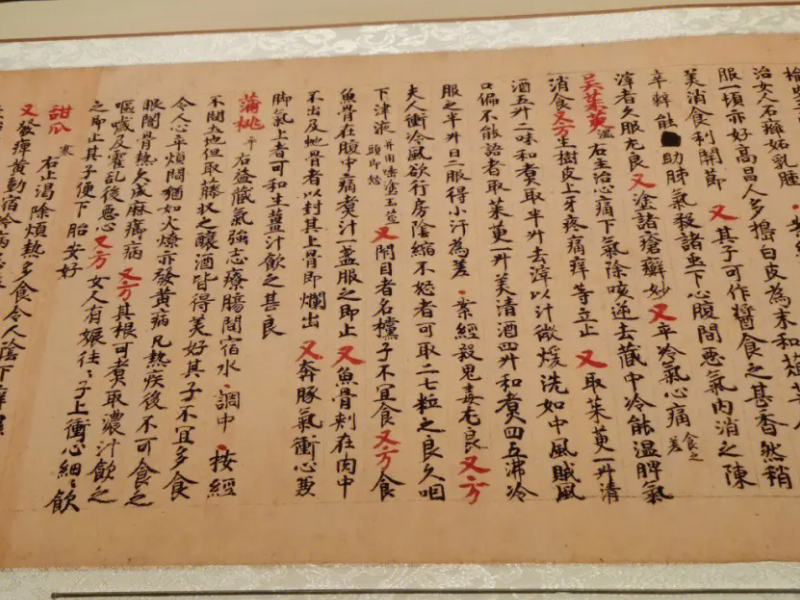 治女人石癰妬乳腫
服一頃亦好高昌人多擣白皮為末和菹菜人
美消食利關節 又 其子可作醬食之甚香然稍
辛辢能助肺氣殺諸虫下心腹間惡氣內消之陳
滓者久服尤良 又 塗諸瘡癬妙 又 卒冷氣心痛食之差
吳茱萸溫 右主治心痛下氣除咳逆去藏中冷能溫脾氣
消食又方生樹皮上牙疼痛痒等立止 又 取茱萸一升清
酒五升二味和煮取半升去滓以汁微煖洗如中風賊風
口偏不能語者取茱萸一升美清酒四升和煮四五沸冷
服之半升日二服得小汗為差・案經殺鬼毒尤良又方
夫人衝冷風欲行房陰縮不怒者可取二七粒之良久咽
下津液并用唾塗玉莖頭即怒 又 閇目者名欓子不宜食又方食
魚骨在腹中痛煮汁一盞服之即止 又 魚骨刾在肉中
不出及虵骨者以封其上骨即爛出 又 奔豚氣衝心兼
脚氣上者可和生薑汁飲之甚良
蒲桃平 右益藏氣強志療腸間宿水・調中・按經
不問土地但取藤状之釀酒皆得美好其子不宜多食
令人心卒煩悶猶如火燎亦發黃病凡熱疾後不可食之
眼闇骨熱久成麻癤病 又方其根可煮取濃汁飲之
嘔噦及霍乱後惡心又方女人有娠往〻子上衝心細〻飲
之即止其子便下胎安好
甜瓜寒 右止渴除煩熱多食令人陰下癢
又發癉黃動宿冷病